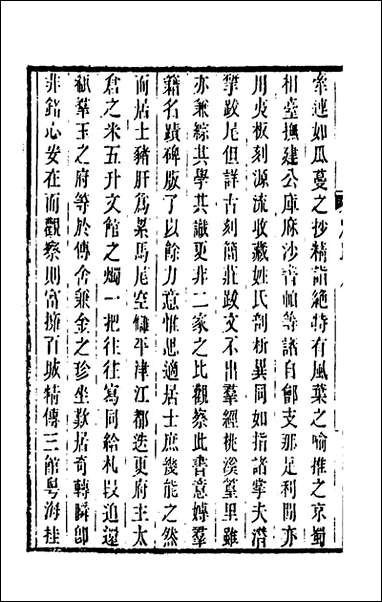 牽連如瓜蔓之抄精詣絶特有風葉之喻推之京蜀
相臺撫建公庫麻沙書帕等諸自鄶支那足利間亦
川夾板刻源流收藏姓氏剖析異同如指諸掌夫潛
揅跋尾但詳古刻簡莊跋文不出羣經桃溪蓽里雖
亦兼綜其學其識更非二家之比觀察此書意娉羣
籍名蹟碑版了以餘力意惟思適居士庶幾能之然
而居士豬肝爲累馬尾空慚平津江都迭更府主太
倉之米五升文館之燭一把往往寫同給札以迫還
瓻羣玉之府等於傳舍兼金之珍坐歎居奇轉瞬卽
非銘心安在而觀察則富擁百城精傳三館粤海挂